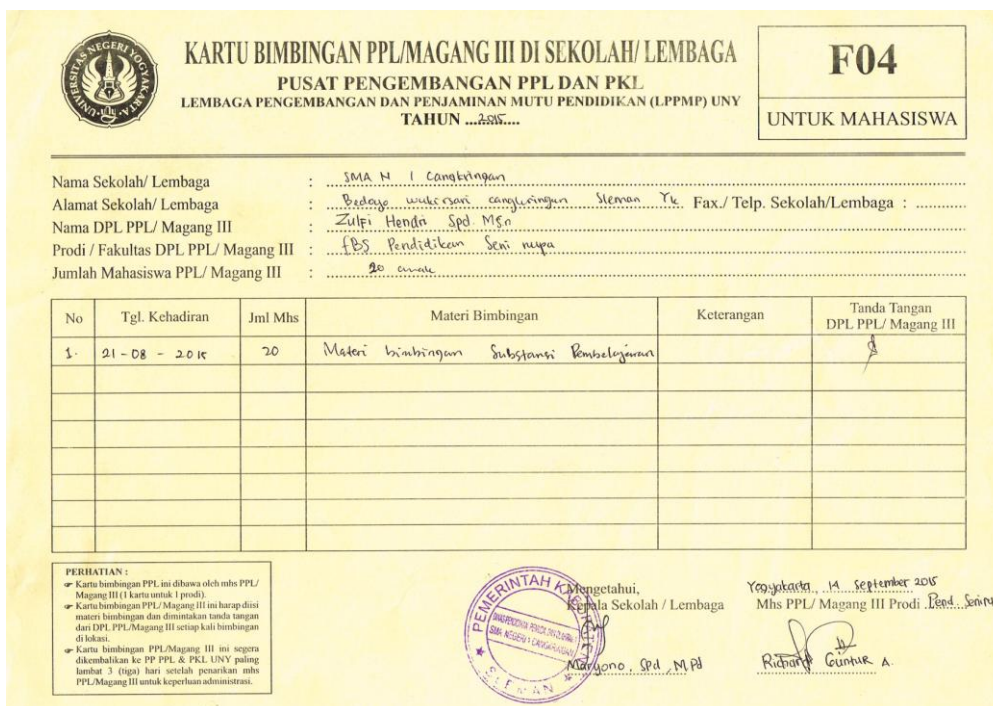 UNIVERSITAS NEGERI YOGYAKARTA
KARTU BIMBINGAN PPL/MAGANG III DI SEKOLAH/ LEMBAGA
PUSAT PENGEMBANGAN PPL DAN PKL
LEMBAGA PENGEMBANGAN DAN PENJAMINAN MUTU PENDIDIKAN (LPPMP) UNY
TAHUN ...2015....
F04
UNTUK MAHASISWA
Nama Sekolah/ Lembaga : SMA N 1 Cangkringan
Alamat Sekolah/ Lembaga : Bedoyo wukirsari cangkringan Sleman Yk. Fax./ Telp. Sekolah/Lembaga : ..........
Nama DPL PPL/ Magang III : Zulfi Hendri Spd. MSn
Prodi / Fakultas DPL PPL/ Magang III : FBS Pendidikan Seni rupa
Jumlah Mahasiswa PPL/ Magang III : 20 anak
No Tgl. Kehadiran Jml Mhs Materi Bimbingan Keterangan Tanda Tangan
DPL PPL/ Magang III
1. 21 - 08 - 2015 20 Materi bimbingan Substansi Pembelajaran
PERHATIAN :
☞ Kartu bimbingan PPL ini dibawa oleh mhs PPL/
Magang III (1 kartu untuk 1 prodi).
☞ Kartu bimbingan PPL/ Magang III ini harap diisi
materi bimbingan dan dimintakan tanda tangan
dari DPL PPL/Magang III setiap kali bimbingan
di lokasi.
☞ Kartu bimbingan PPL/Magang III ini segera
dikembalikan ke PP PPL & PKL UNY paling
lambat 3 (tiga) hari setelah penarikan mhs
PPL/Magang III untuk keperluan administrasi.
PEMERINTAH KABUPATEN
SMA NEGERI 1 CANGKRINGAN
SLEMAN
Mengetahui,
Kepala Sekolah / Lembaga
Maryono, SPd, MPd
Yogyakarta, 14 September 2015
Mhs PPL/ Magang III Prodi Pend. Seni
Richard Guntur A.